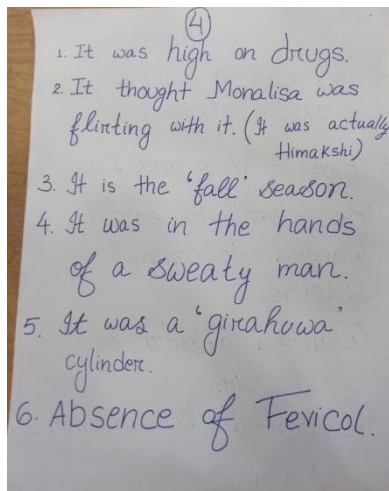 4
1. It was high on drugs.
2. It thought Monalisa was
flirting with it. (It was actually
Himakshi)
3. It is the 'fall' season.
4. It was in the hands
of a sweaty man.
5. It was a 'girahuwa'
cylinder.
6. Absence of Fevicol.